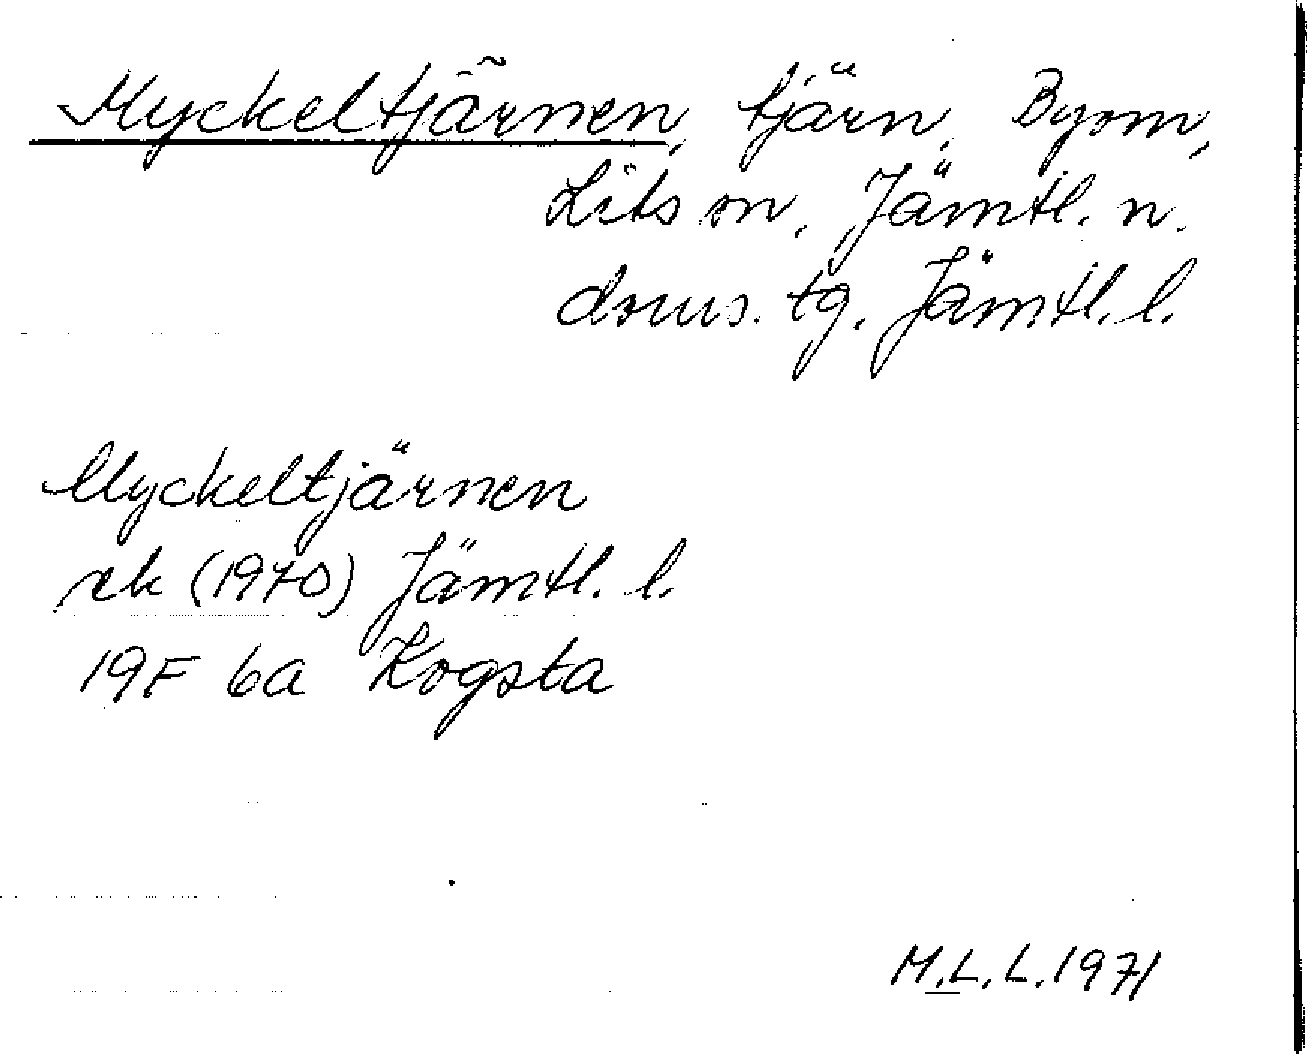 Myckeltjärnen, tjärn, Byom,
Lits sn, Jämtl. n.
doms. tg. Jämtl. l.
Myckeltjärnen
rk (1970) Jämtl. l.
19F 6a Kogsta
M.L.L. 1971